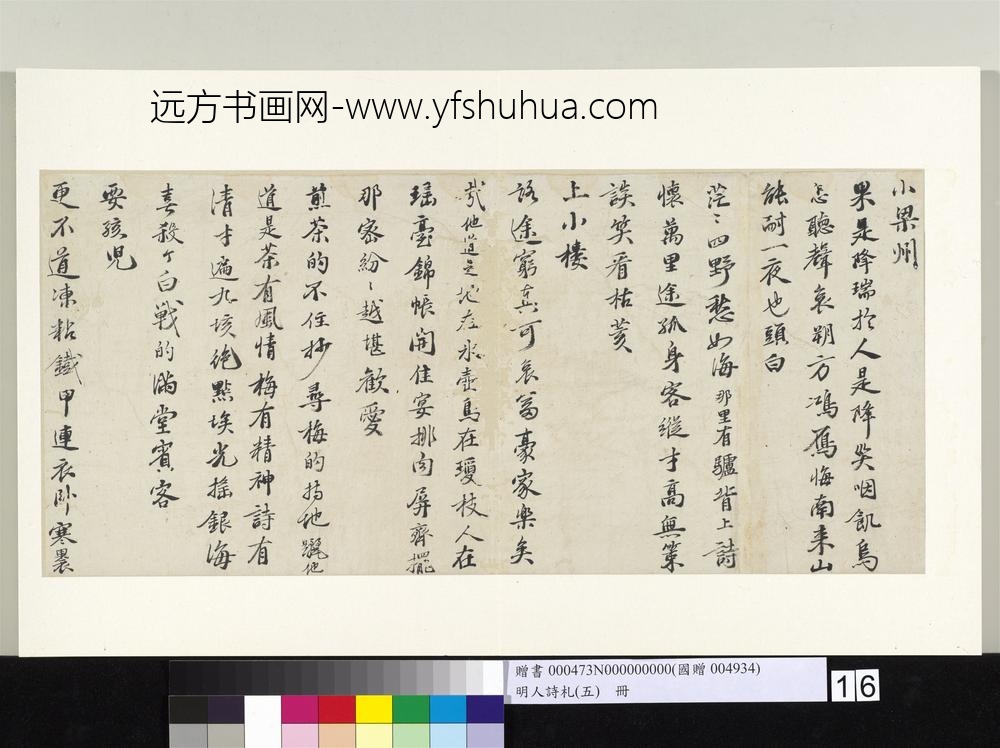 远方书画网-www.yfshuhua.com
小梁州
果是降瑞於人是降災咽飢烏
怎聽聲哀朔方鴻雁悔南来山
能耐一夜也頭白
茫〻四野愁如海那里有驢背上詩
懷萬里途孤身客縱才高無策
談笑看枯荄
上小樓
路途窮真可哀富豪家樂矣
哉他道是地在氷壺鳥在瓊枝人在
瑶臺錦帳開佳宴排肉屏齊擺
那密紛〻越堪歡愛
煎茶的不住抄尋梅的
道是茶有風情梅有精神詩有
清才遍九垓絶點埃光搖銀海
喜殺个白戰的滿堂賓客
耍孩兒
更不道凍粘鐵甲連衣卧寒
贈書 000473N000000000(國贈 004934)
明人詩札(五) 冊
16